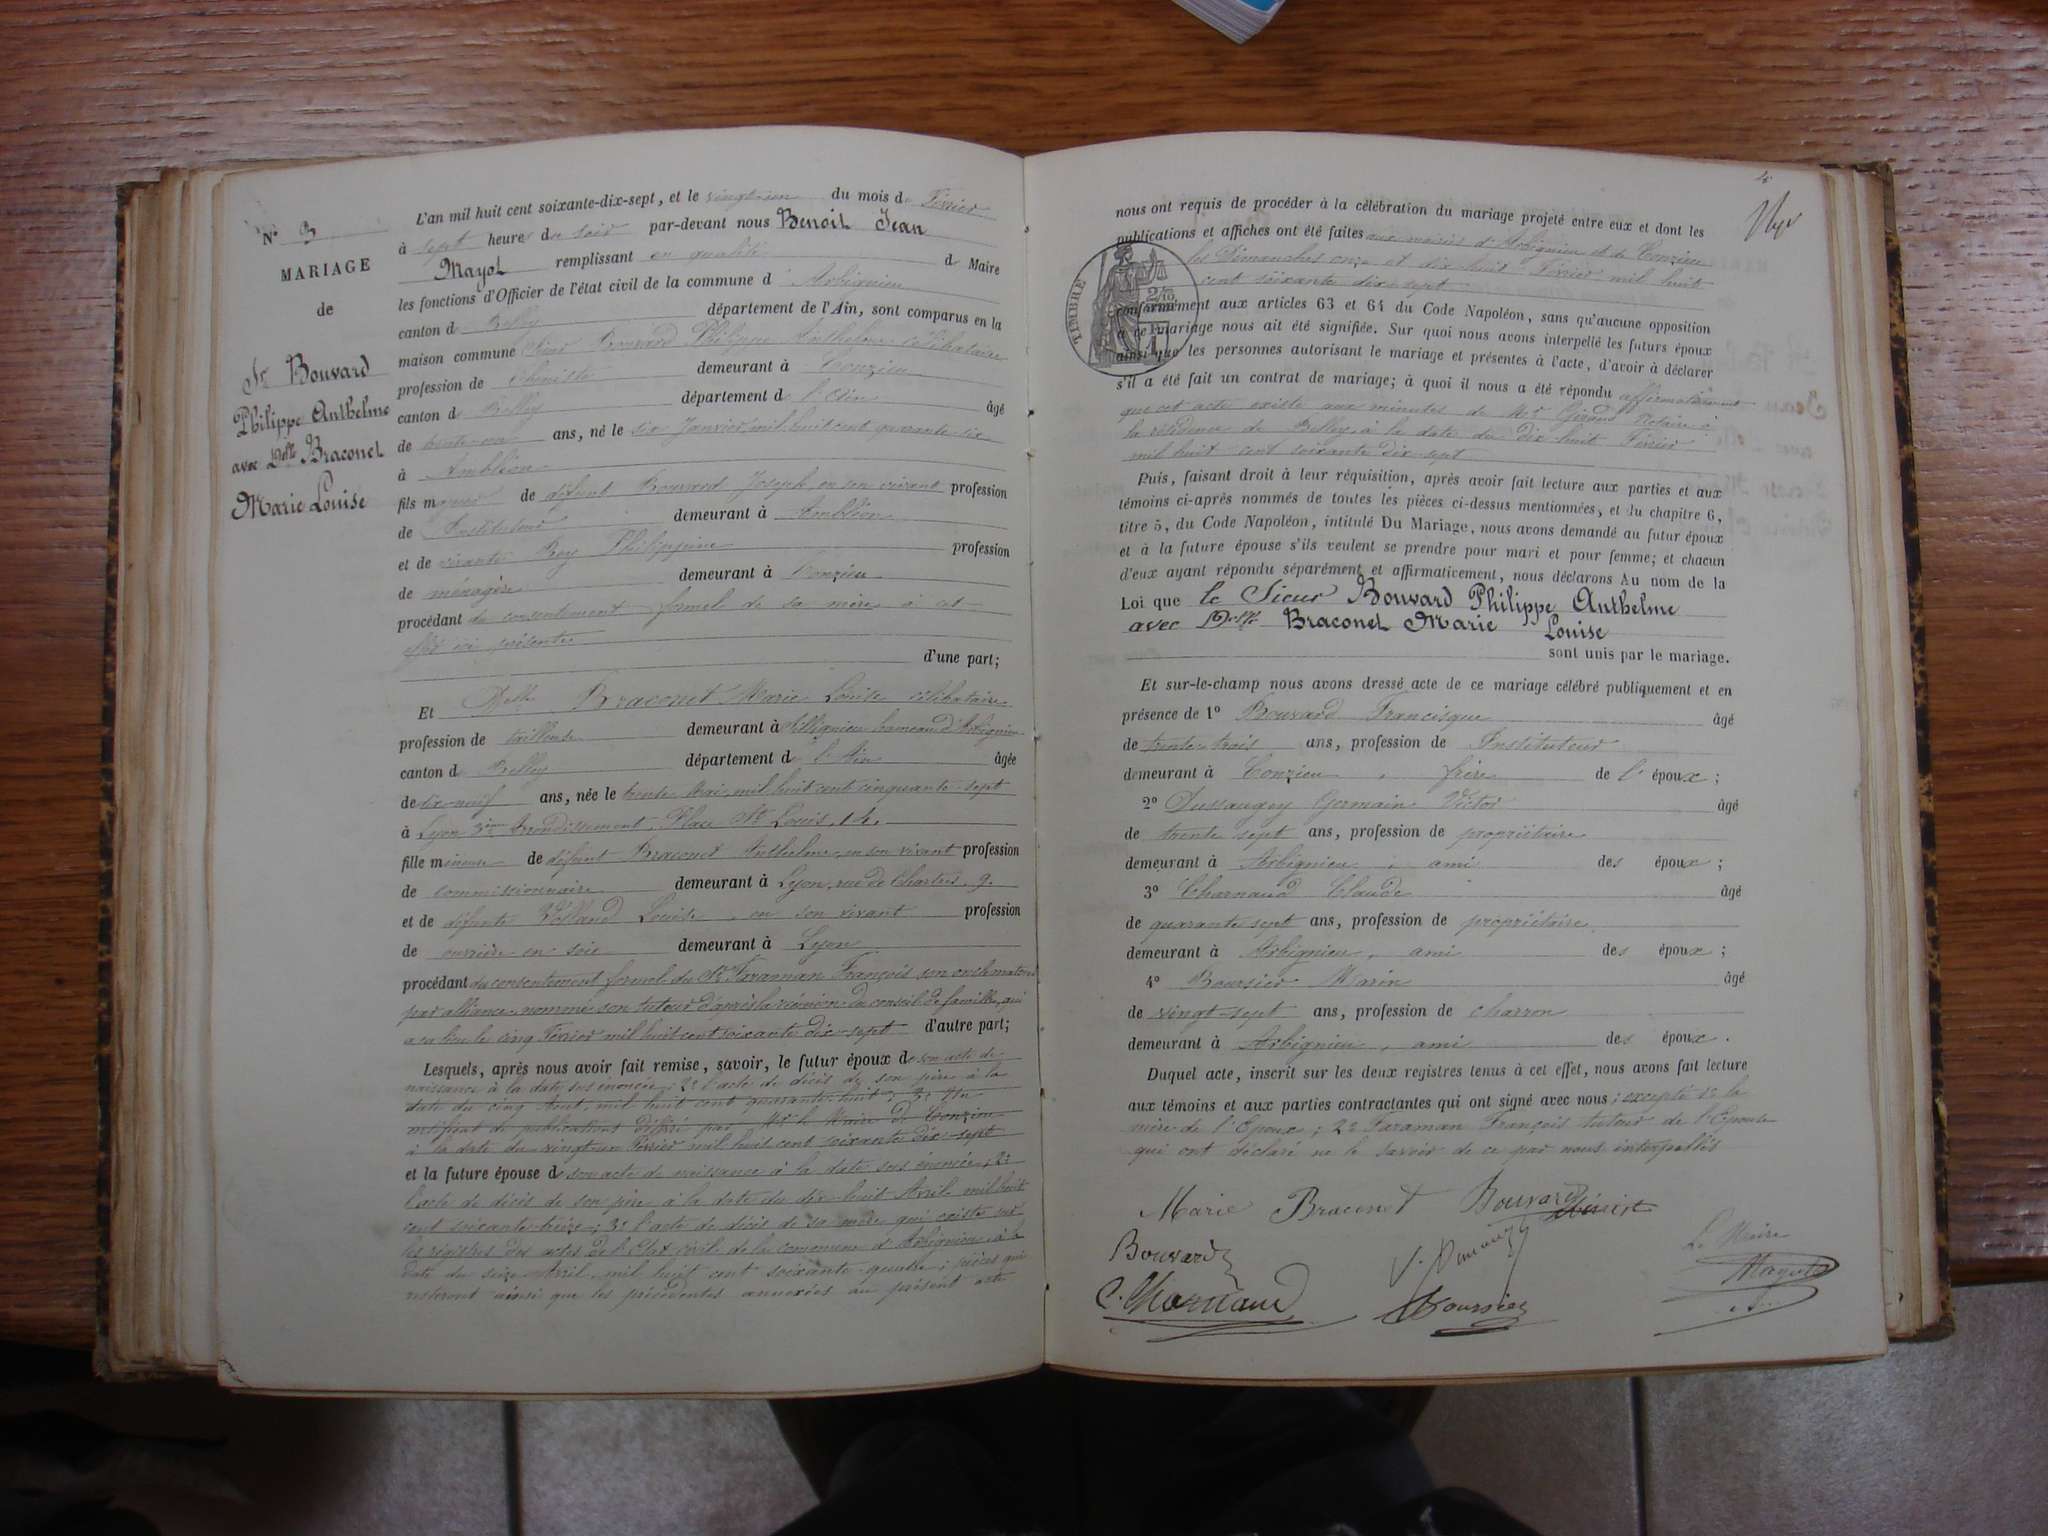 N° 3
MARIAGE
de
Sr Bouvard
Philippe Anthelme
avec Delle Braconet
Marie Louise
L'an mil huit cent soixante-dix-sept, et le vingt-un du mois de Février
à sept heures du soir par-devant nous Benoit Jean
Mayot remplissant en qualité d Maire
les fonctions d'Officier de l'état civil de la commune d'Arbignieu
canton de Belley département de l'Ain, sont comparus en la
maison commune Sieur Bouvard Philippe Anthelme célibataire
profession de demeurant à Conzieu
canton de Belley département de l'Ain âgé
de trente-un ans, né le six Janvier mil huit cent quarante-six
à Ambléon
fils majeur de défunt Bouvard Joseph, en son vivant profession
de Instituteur demeurant à Ambléon
et de vivante Rey Philippine profession
de ménagère demeurant à Conzieu
procédant du consentement formel de sa mère à cet
effet ici présente
d'une part;
Et Delle Braconet Marie Louise célibataire
profession de tailleuse demeurant à Sillignieu hameau d'Arbignieu
canton de Belley département de l'Ain âgée
de dix-neuf ans, née le trente Mai mil huit cent cinquante-sept
à Lyon 3ème Arrondissement, Place St Louis, 14.
fille mineure de défunt Braconet Anthelme, en son vivant profession
de commissionnaire demeurant à Lyon, rue de Chartres, 9.
et de défunte Volland Louise, en son vivant profession
de ouvrière en soie demeurant à Lyon
procédant du consentement formel du Sr Faraman François son oncle maternel
par alliance, nommé son tuteur d'après la réunion du conseil de famille, qui
a eu lieu le cinq Février mil huit cent soixante dix-sept d'autre part;
Lesquels, après nous avoir fait remise, savoir, le futur époux de son acte de
naissance à la date sus énoncée; 2° l'acte de décès de son père à la
date du cinq Aout, mil huit cent quarante-huit; 3° Un
certificat de publications délivré par Mr le Maire de Conzieu
à la date du vingt-un Février mil huit cent soixante dix-sept
et la future épouse de son acte de naissance à la date sus énoncée; 2°
l'acte de décès de son père à la date du dix-huit Avril mil huit
cent soixante-treize; 3° l'acte de décès de sa mère qui existe sur
les registres des actes de l'Etat civil de la commune d'Arbignieu, à la
date du seize Avril, mil huit cent soixante-quatre; pièces qui
resteront ainsi que les précédentes annexées au présent acte
4
nous ont requis de procéder à la célébration du mariage projeté entre eux et dont les
publications et affiches ont été faites aux mairies d'Arbignieu et de Conzieu
les Dimanches onze et dix-huit Février mil huit
cent soixante dix-sept
TIMBRE
conformément aux articles 63 et 64 du Code Napoléon, sans qu'aucune opposition
à ce mariage nous ait été signifiée. Sur quoi nous avons interpellé les futurs époux
ainsi que les personnes autorisant le mariage et présentes à l'acte, d'avoir à déclarer
s'il a été fait un contrat de mariage; à quoi il nous a été répondu affirmativement
que cet acte existe aux minutes de Mr Giraud Notaire à
la résidence de Belley, à la date du dix-huit Février
mil huit cent soixante dix-sept
Puis, faisant droit à leur réquisition, après avoir fait lecture aux parties et aux
témoins ci-après nommés de toutes les pièces ci-dessus mentionnées, et du chapitre 6,
titre 5, du Code Napoléon, intitulé Du Mariage, nous avons demandé au futur époux
et à la future épouse s'ils veulent se prendre pour mari et pour femme; et chacun
d'eux ayant répondu séparément et affirmativement, nous déclarons Au nom de la
Loi que le Sieur Bouvard Philippe Anthelme
avec Delle Braconet Marie Louise
sont unis par le mariage.
Et sur-le-champ nous avons dressé acte de ce mariage célébré publiquement et en
présence de 1° Bouvard Francisque âgé
de trente-trois ans, profession de Instituteur
demeurant à Conzieu, frère de l'époux;
2° Dussaugey Germain Victor âgé
de trente-sept ans, profession de propriétaire
demeurant à Arbignieu, ami des époux;
3° Charnaud Claude âgé
de quarante-sept ans, profession de propriétaire
demeurant à Arbignieu, ami des époux;
4° Boursier Marin âgé
de vingt-sept ans, profession de charron
demeurant à Arbignieu, ami des époux.
Duquel acte, inscrit sur les deux registres tenus à cet effet, nous avons fait lecture
aux témoins et aux parties contractantes qui ont signé avec nous; excepté 1° la
mère de l'Epoux; 2° Faraman François tuteur de l'Epouse
qui ont déclaré ne le savoir de ce par nous interpellés
Marie Braconet Bouvard
Bouvard
Le Maire
C. Charnaud Boursier Mayot